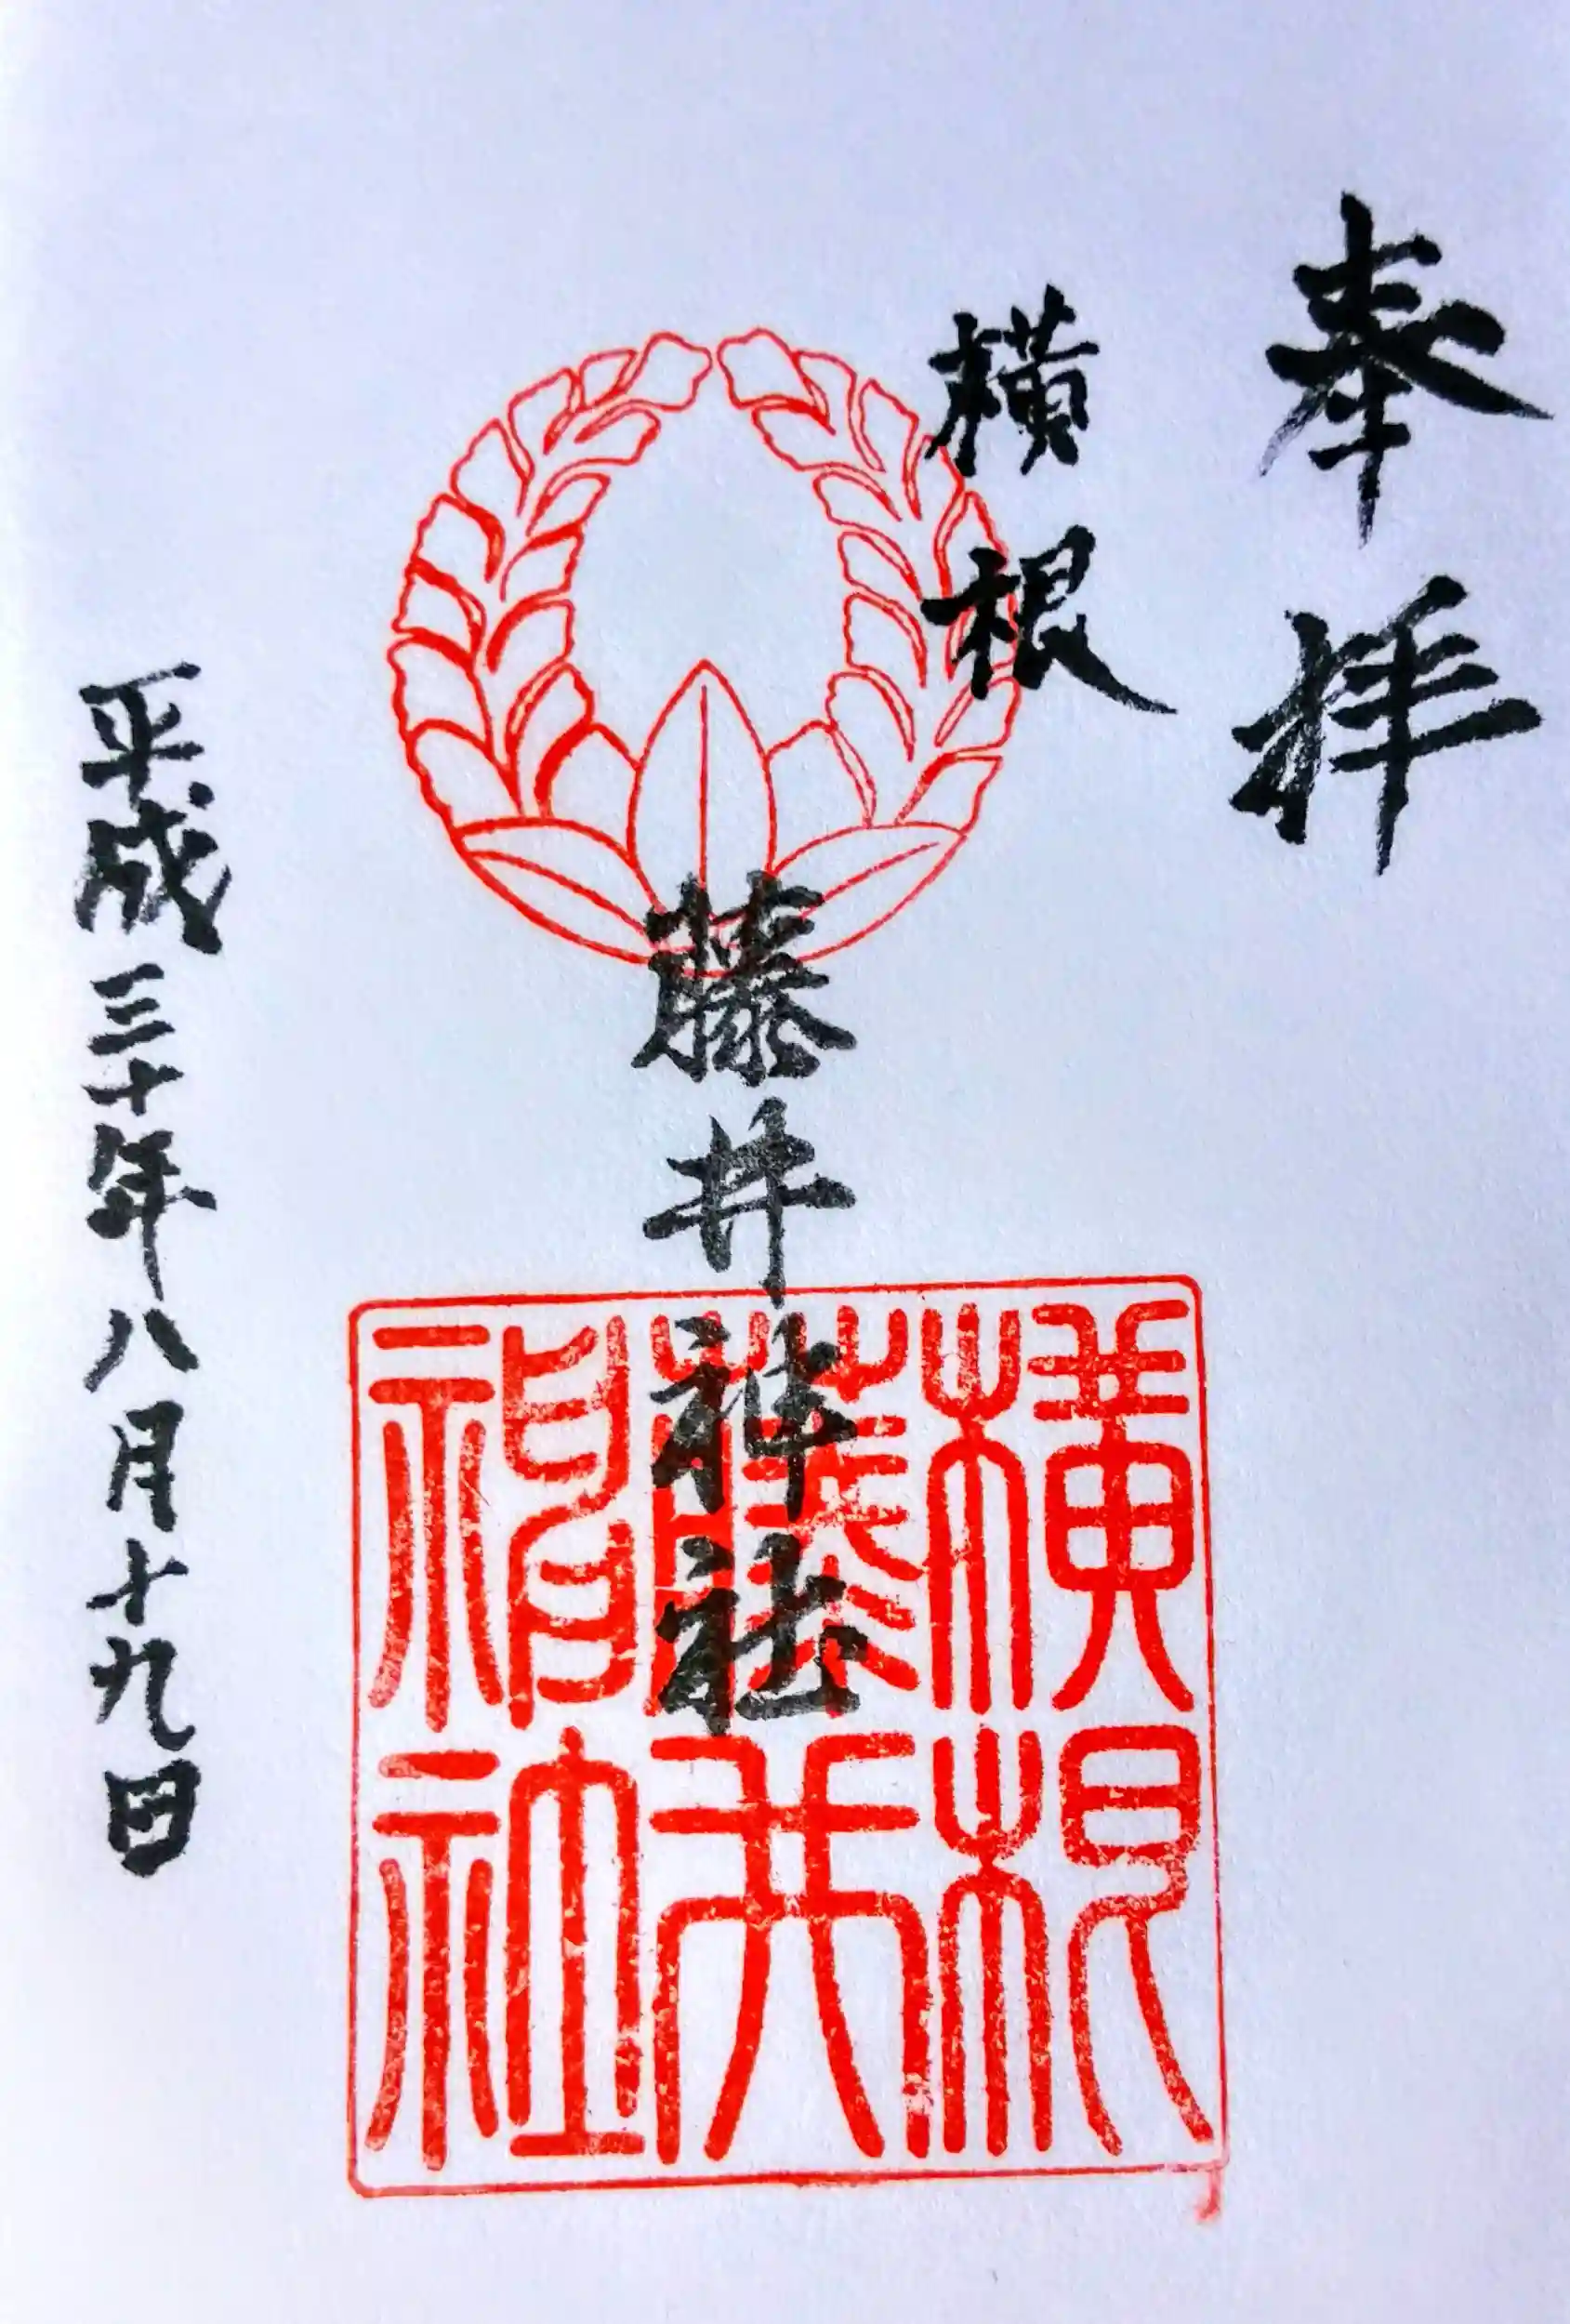 奉拝
横根
藤井神社
平成三十年八月十九日
横根
藤井
神社